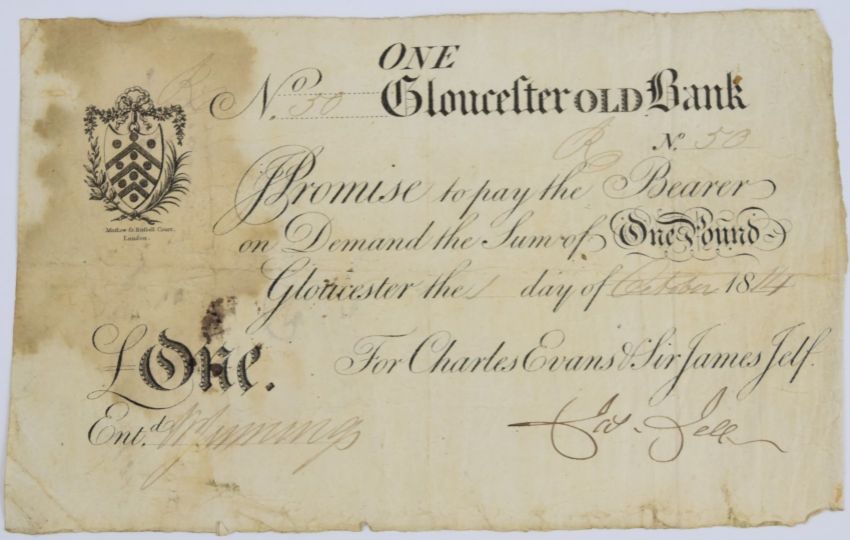 ONE
No. 50 Gloucester OLD Bank
No. 50
I Promise to pay the Bearer
on Demand the Sum of One Pound
Gloucester the 1 day of October 1814
£ One. For Charles Evans & Sir James Jelf.
Ent.d Jas. Jelf
Russell Court,
London.